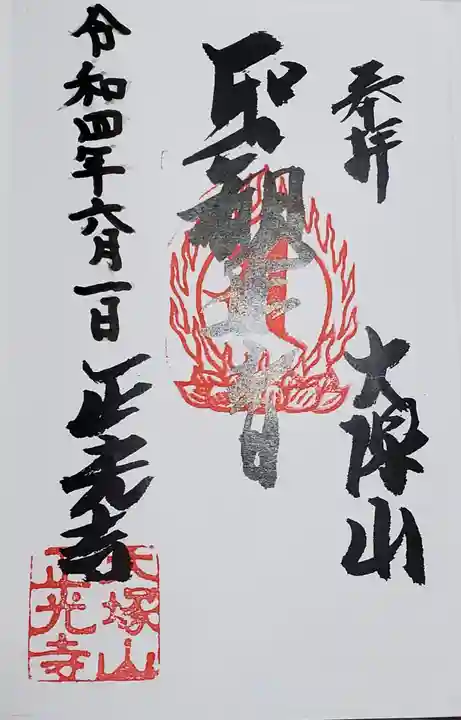 奉拝
大塚山
聖観世音
令和四年六月一日 正光寺
大塚山
正光寺